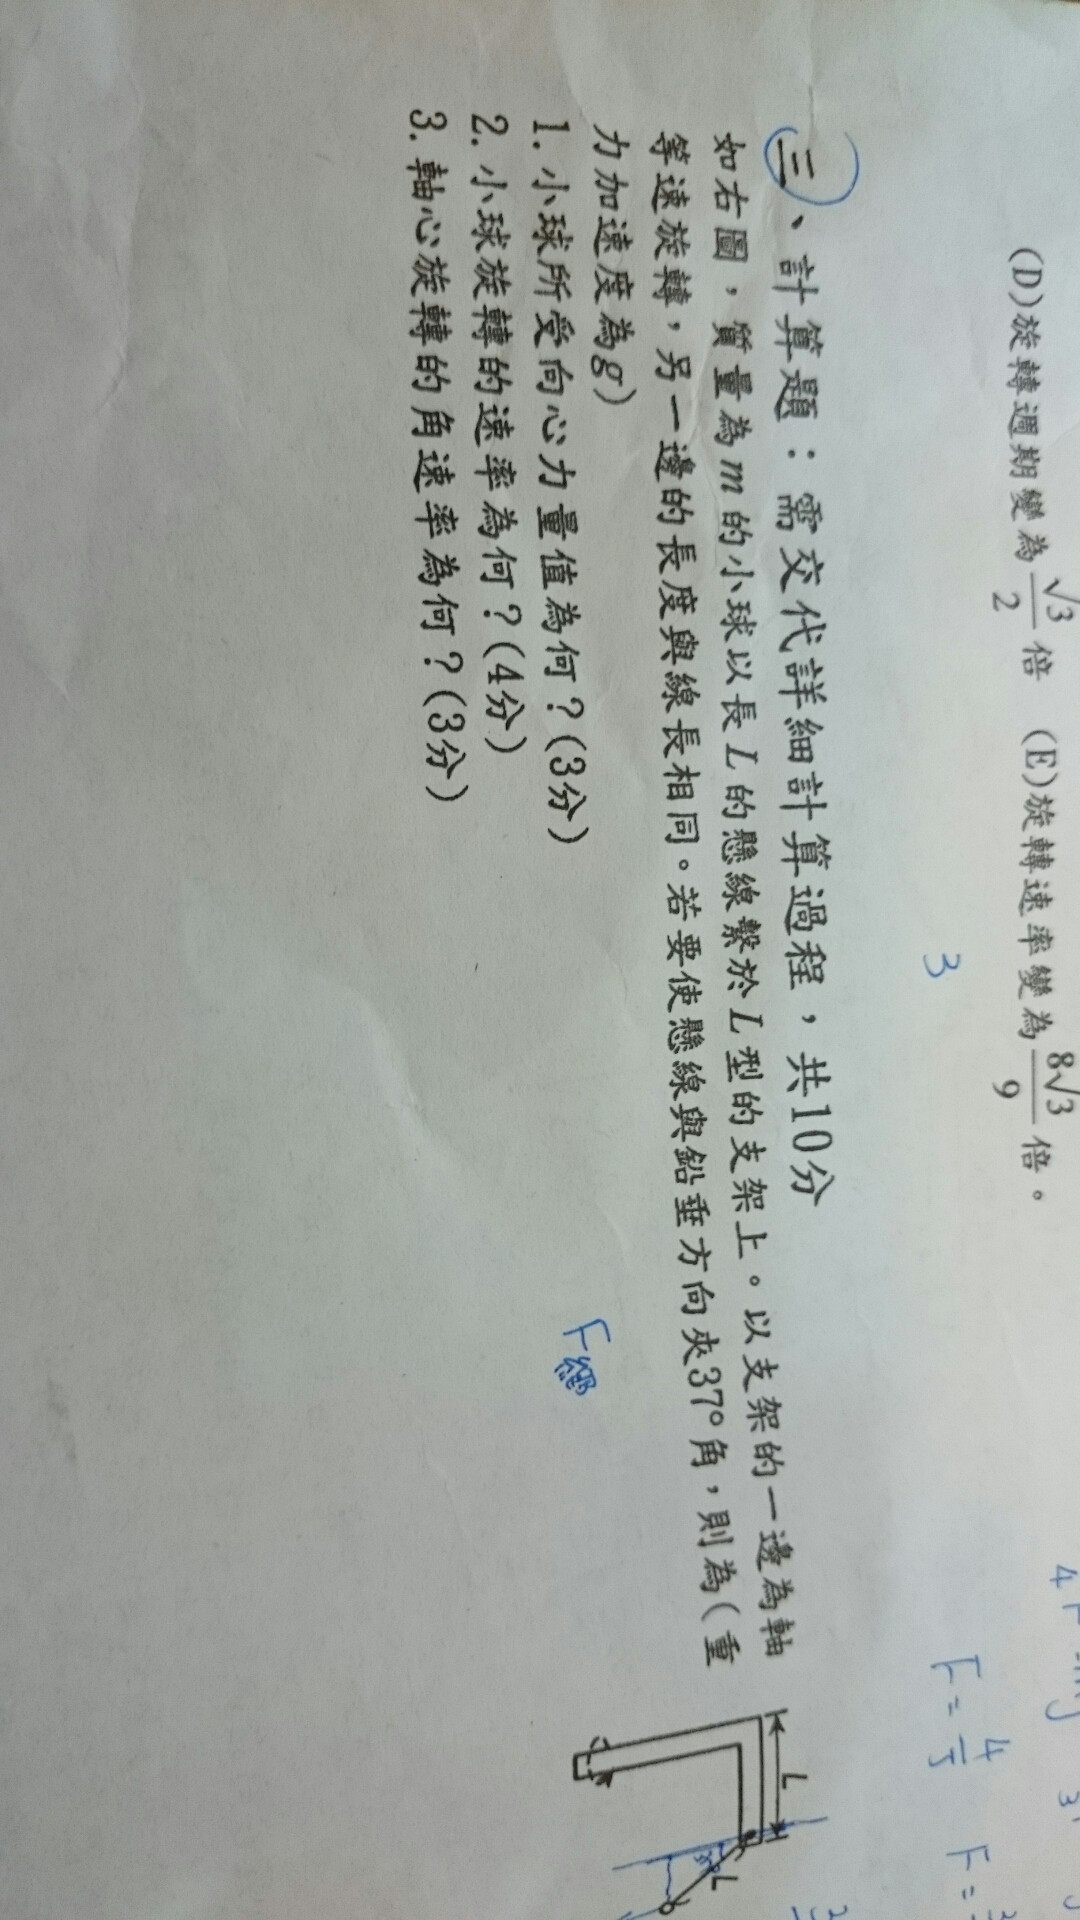 (D)旋轉週期變為√3/2倍 (E)旋轉速率變為8√3/9倍。
3
三、計算題：需交代詳細計算過程，共10分
如右圖，質量為m的小球以長L的懸線繫於L型的支架上。以支架的一邊為軸
等速旋轉，另一邊的長度與線長相同。若要使懸線與鉛垂方向夾37°角，則為(重
力加速度為g)
1.小球所受向心力量值為何？(3分)
2.小球旋轉的速率為何？(4分)
3.軸心旋轉的角速率為何？(3分)
L
L
F=4/5
F=
F繩